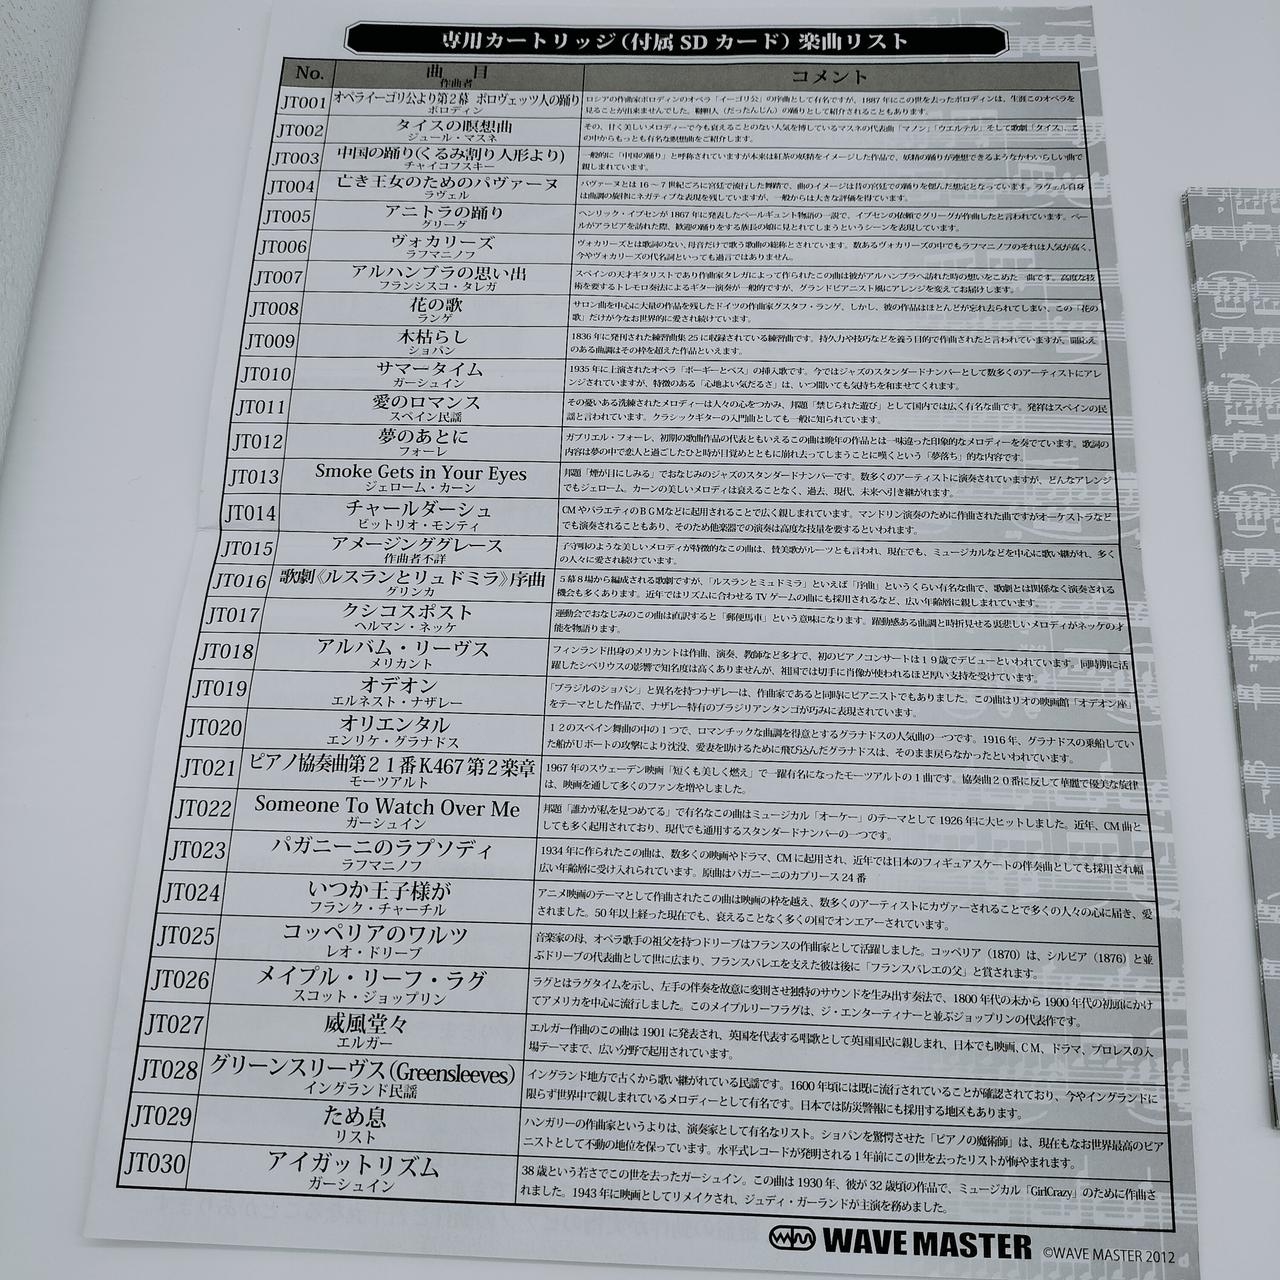 専用カートリッジ（付属 SD カード）楽曲リスト
No.
曲　目
作曲者
コメント
JT001
オペライーゴリ公より第２幕　ポロヴェッツ人の踊り
ボロディン
ロシアの作曲家ボロディンのオペラ「イーゴリ公」の序曲として有名ですが、1887 年にこの世を去ったボロディンは、生涯このオペラを
見ることが出来ませんでした。韃靼人（だったんじん）の踊りとして紹介されることもあります。
JT002
タイスの瞑想曲
ジュール・マスネ
その、甘く美しいメロディーで今も衰えることのない人気を博しているマスネの代表曲「マノン」「ウエルテル」そして歌劇「タイス」。こ
の中からもっとも有名な瞑想曲をご紹介します。
JT003
中国の踊り(くるみ割り人形より)
チャイコフスキー
一般的に「中国の踊り」と呼称されていますが本来は紅茶の妖精をイメージした作品で、妖精の踊りが連想できるようなかわいらしい曲で
親しまれています。
JT004
亡き王女のためのパヴァーヌ
ラヴェル
パヴァーヌとは 16 ～ 7 世紀ごろに宮廷で流行した舞踏で、曲のイメージは昔の宮廷での踊りを偲んだ想定となっています。ラヴェル自身
は曲調の旋律にネガティブな表現を残していますが、一般からは大きな評価を得ています。
JT005
アニトラの踊り
グリーグ
ヘンリック・イプセンが 1867 年に発表したペールギュント物語の一説で、イプセンの依頼でグリーグが作曲したと言われています。ペー
ルがアラビアを訪れた際、歓迎の踊りをする族長の娘に見とれてしまうというシーンを表現しています。
JT006
ヴォカリーズ
ラフマニノフ
ヴォカリーズとは歌詞のない、母音だけで歌う歌曲の総称とされています。数あるヴォカリーズの中でもラフマニノフのそれは人気が高く、
今やヴォカリーズの代名詞といっても過言ではありません。
JT007
アルハンブラの思い出
フランシスコ・タレガ
スペインの天才ギタリストであり作曲家タレガによって作られたこの曲は彼がアルハンブラへ訪れた時の想いをこめた一曲です。高度な技
術を要するトレモロ奏法によるギター演奏が一般的ですが、グランドピアニスト風にアレンジを変えてお届けします。
JT008
花の歌
ランゲ
サロン曲を中心に大量の作品を残したドイツの作曲家グスタフ・ランゲ、しかし、彼の作品はほとんどが忘れ去られてしまい、この「花の
歌」だけが今なお世界的に愛され続けています。
JT009
木枯らし
ショパン
1836 年に発刊された練習曲集 25 に収録されている練習曲です。持久力や技巧などを養う目的で作曲されたと言われていますが、聞応え
のある曲調はその枠を超えた作品といえます。
JT010
サマータイム
ガーシュイン
1935 年に上演されたオペラ「ポーギーとベス」の挿入歌です。今ではジャズのスタンダードナンバーとして数多くのアーティストにアレ
ンジされていますが、特徴のある「心地よい気だるさ」は、いつ聞いても気持ちを和ませてくれます。
JT011
愛のロマンス
スペイン民謡
その憂いある洗練されたメロディーは人々の心をつかみ、邦題「禁じられた遊び」として国内では広く有名な曲です。発祥はスペインの民
謡と言われています。クラシックギターの入門曲としても一般に知られています。
JT012
夢のあとに
フォーレ
ガブリエル・フォーレ、初期の歌曲作品の代表ともいえるこの曲は晩年の作品とは一味違った印象的なメロディーを奏でています。歌詞の
内容は夢の中で恋人と過ごしたひと時が目覚めとともに崩れ去ってしまうことに嘆くという「夢落ち」的な内容です。
JT013
Smoke Gets in Your Eyes
ジェローム・カーン
邦題「煙が目にしみる」でおなじみのジャズのスタンダードナンバーです。数多くのアーティストに演奏されていますが、どんなアレンジ
でもジェローム。カーンの美しいメロディは衰えることなく、過去、現代、未来へ引き継がれます。
JT014
チャールダーシュ
ビットリオ・モンティ
CM やバラエティのＢＧＭなどに起用されることで広く親しまれています。マンドリン演奏のために作曲された曲ですがオーケストラなど
でも演奏されることもあり、そのため他楽器での演奏は高度な技量を要するといわれます。
JT015
アメージンググレース
作曲者不詳
子守唄のような美しいメロディが特徴的なこの曲は、賛美歌がルーツとも言われ、現在でも、ミュージカルなどを中心に歌い継がれ、多く
の人々に愛され続けています。
JT016
歌劇《ルスランとリュドミラ》序曲
グリンカ
５幕８場から編成される歌劇ですが、「ルスランとミュドミラ」といえば「序曲」というくらい有名な曲で、歌劇とは関係なく演奏される
機会も多くあります。近年ではリズムに合わせる TV ゲームの曲にも採用されるなど、広い年齢層に親しまれています。
JT017
クシコスポスト
ヘルマン・ネッケ
運動会でおなじみのこの曲は直訳すると「郵便馬車」という意味になります。躍動感ある曲調と時折見せる裏悲しいメロディがネッケの才
能を物語ります。
JT018
アルバム・リーヴス
メリカント
フィンランド出身のメリカントは作曲、演奏、教師など多才で、初のピアノコンサートは１９歳でデビューといわれています。同時期に活
躍したシベリウスの影響で知名度は高くありませんが、祖国では切手に肖像が使われるほど厚い支持を受けています。
JT019
オデオン
エルネスト・ナザレー
「ブラジルのショパン」と異名を持つナザレーは、作曲家であると同時にピアニストでもありました。この曲はリオの映画館「オデオン座」
をテーマとした作品で、ナザレー特有のブラジリアンタンゴが巧みに表現されています。
JT020
オリエンタル
エンリケ・グラナドス
１２のスペイン舞曲の中の１つで、ロマンチックな曲調を得意とするグラナドスの人気曲の一つです。1916 年、グラナドスの乗船してい
た船がＵボートの攻撃により沈没、愛妻を助けるために飛び込んだグラナドスは、そのまま戻らなかったといわれています。
JT021
ピアノ協奏曲第２１番 K.467 第２楽章
モーツアルト
1967 年のスウェーデン映画「短くも美しく燃え」で一躍有名になったモーツアルトの１曲です。協奏曲２０番に反して華麗で優美な旋律
は、映画を通して多くのファンを増やしました。
JT022
Someone To Watch Over Me
ガーシュイン
邦題「誰かが私を見つめてる」で有名なこの曲はミュージカル「オーケー」のテーマとして 1926 年に大ヒットしました。近年、CM 曲と
しても多く起用されており、現代でも通用するスタンダードナンバーの一つです。
JT023
パガニーニのラプソディ
ラフマニノフ
1934 年に作られたこの曲は、数多くの映画やドラマ、CM に起用され、近年では日本のフィギュアスケートの伴奏曲としても採用され幅
広い年齢層に受け入れられています。原曲はパガニーニのカプリース 24 番
JT024
いつか王子様が
フランク・チャーチル
アニメ映画のテーマとして作曲されたこの曲は映画の枠を越え、数多くのアーティストにカヴァーされることで多くの人々の心に届き、愛
されました。50 年以上経った現在でも、衰えることなく多くの国でオンエアーされています。
JT025
コッペリアのワルツ
レオ・ドリーブ
音楽家の母、オペラ歌手の祖父を持つドリーブはフランスの作曲家として活躍しました。コッペリア（1870）は、シルビア（1876）と並
ぶドリーブの代表曲として世に広まり、フランスバレエを支えた彼は後に「フランスバレエの父」と賞されます。
JT026
メイプル・リーフ・ラグ
スコット・ジョップリン
ラグとはラグタイムを示し、左手の伴奏を故意に変則させ独特のサウンドを生み出す奏法で、1800 年代の末から 1900 年代の初頭にかけ
てアメリカを中心に流行しました。このメイプルリーフラグは、ジ・エンターティナーと並ぶジョップリンの代表作です。
JT027
威風堂々
エルガー
エルガー作曲のこの曲は 1901 に発表され、英国を代表する唱歌として英国国民に親しまれ、日本でも映画、ＣＭ、ドラマ、プロレスの入
場テーマまで、広い分野で起用されています。
JT028
グリーンスリーヴス（Greensleeves）
イングランド民謡
イングランド地方で古くから歌い継がれている民謡です。1600 年頃には既に流行されていることが確認されており、今やイングランドに
限らず世界中で親しまれているメロディーとして有名です。日本では防災警報にも採用する地区もあります。
JT029
ため息
リスト
ハンガリーの作曲家というよりは、演奏家として有名なリスト。ショパンを驚愕させた「ピアノの魔術師」は、現在もなお世界最高のピア
ニストとして不動の地位を保っています。水平式レコードが発明される 1 年前にこの世を去ったリストが悔やまれます。
JT030
アイガットリズム
ガーシュイン
38 歳という若さでこの世を去ったガーシュイン。この曲は 1930 年、彼が 32 歳頃の作品で、ミュージカル「GirlCrazy」のために作曲さ
れました。1943 年に映画としてリメイクされ、ジュディ・ガーランドが主演を務めました。
WAVE MASTER ©WAVE MASTER 2012